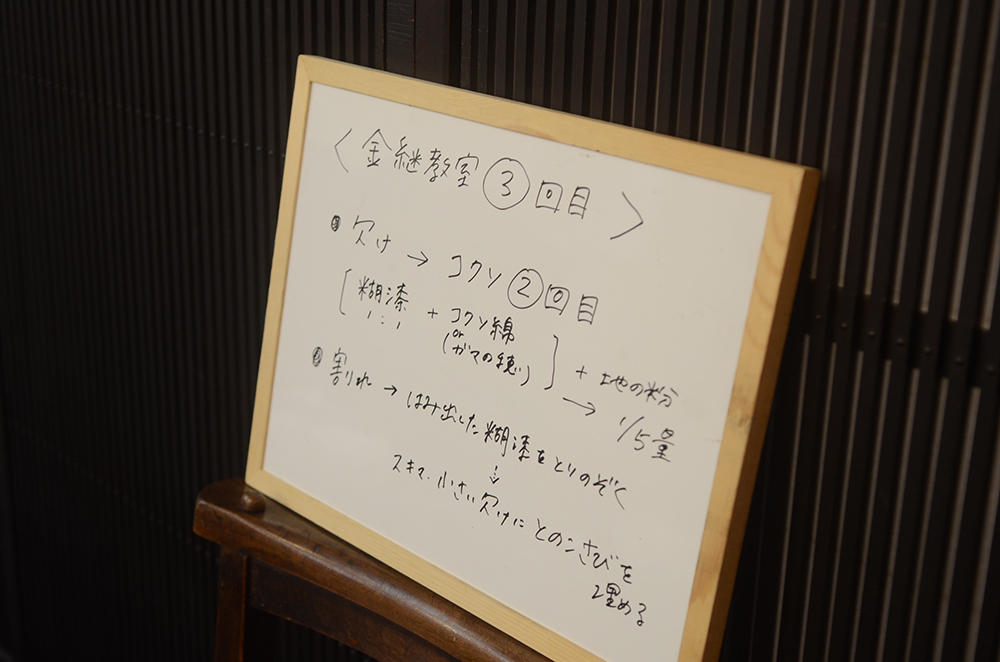 〈金継教室③回目〉
欠け→コクソ②回目
[糊漆 + コクソ綿
1:1
or
(ガマの穂)] + 地の粉分
→ 1/5量
割れ→はみ出した糊漆をとりのぞく
↓
スキマ・小さい欠けにとのこさびを
埋める